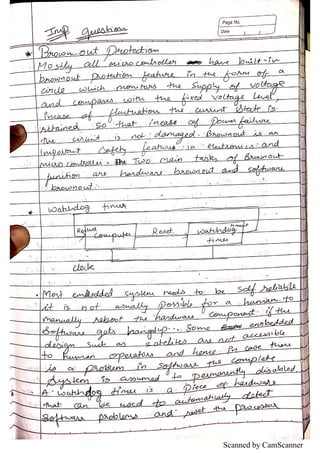 Page No.
Date
Imp questions
* Brown out Protection
Mostly all microcontroller have built-in
brownout protection feature in the form of a
circle which monitors the supply of voltage
and compares with the fixed voltage level,
incase of fluctuation the current state is
attained so that incase of power failure
the circuit is not damaged. Brownout is an
Important safety features in electronics and
microcontroller. Two main tasks of Brownout
junction are hardware brownout and software
brownout.
* Watchdog timer
Restart
Computer
Reset
watchdog
timer
clock
• Most embedded system needs to be self reliable
it is not usually possible for a human to
manually reboot the hardware component if the
software gets hangup... Some embedded
design such as satelites are not accessible
to human operators and hence in case there
is a problem in software the complete
system is assumed to permanently disabled.
• A watchdog timer is a piece of hardware
that can be used to automatically detect
software problems and reset the processor
Scanned by CamScanner